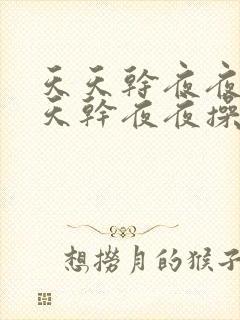 天天幹夜夜
天幹夜夜操
想撈月的猴子